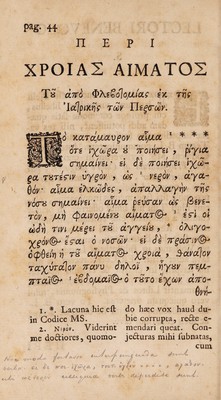 pag. 44
ΠΕΡΙ
ΧΡΟΙΑΣ ΑΙΜΑΤΟΣ
Τȣ͂ ἀπὸ Φλεβοτομίας ἐκ τῆς
Ἰατρικῆς τῶν Περσῶν.
Τὸ κατάμαυρον αἷμα ¹ * * * *
ὅτε ἰχῶρα ȣ ποιήσει, ῥίγια
σημαίνει· εἰ δὲ ποιήσει ἰχῶ-
ρα τȣτέςιν ὑγρὸν, ὡς ² νερὸν, ἀγα-
θόν· αἷμα ἑλκῶδες, ἀπαλλαγὴν τῆς
νόσȣ σημαίνει· αἷμα ῥεύσαν ὡς βένε-
τον, μὴ φαινομένȣ αἵματος· ἔτι οἱ
ὠδὴ τινι μέρει τȣ ἀγγείȣ, ὀλιγο-
χρόνιος ἔσαι ὁ νοσῶν· εἰ δὲ πράσινος
ὀφθείη ἡ τȣ͂ αἵματος χροιὰ, θάνατον
ταχύτατον πάνυ δηλοῖ, ἤγȣν πεμ-
πταῖος ἑβδομαῖος ὁ τȣ͂το ἔχων ἀπο-
θνή-
1. *. Lacuna hic est
in Codice MS.
2. Νερὸν. Viderint
me doctiores, quomo-
do hæc vox haud du-
bie corrupta, recte e-
mendari queat. Con-
jecturas mihi subnatas,
cum